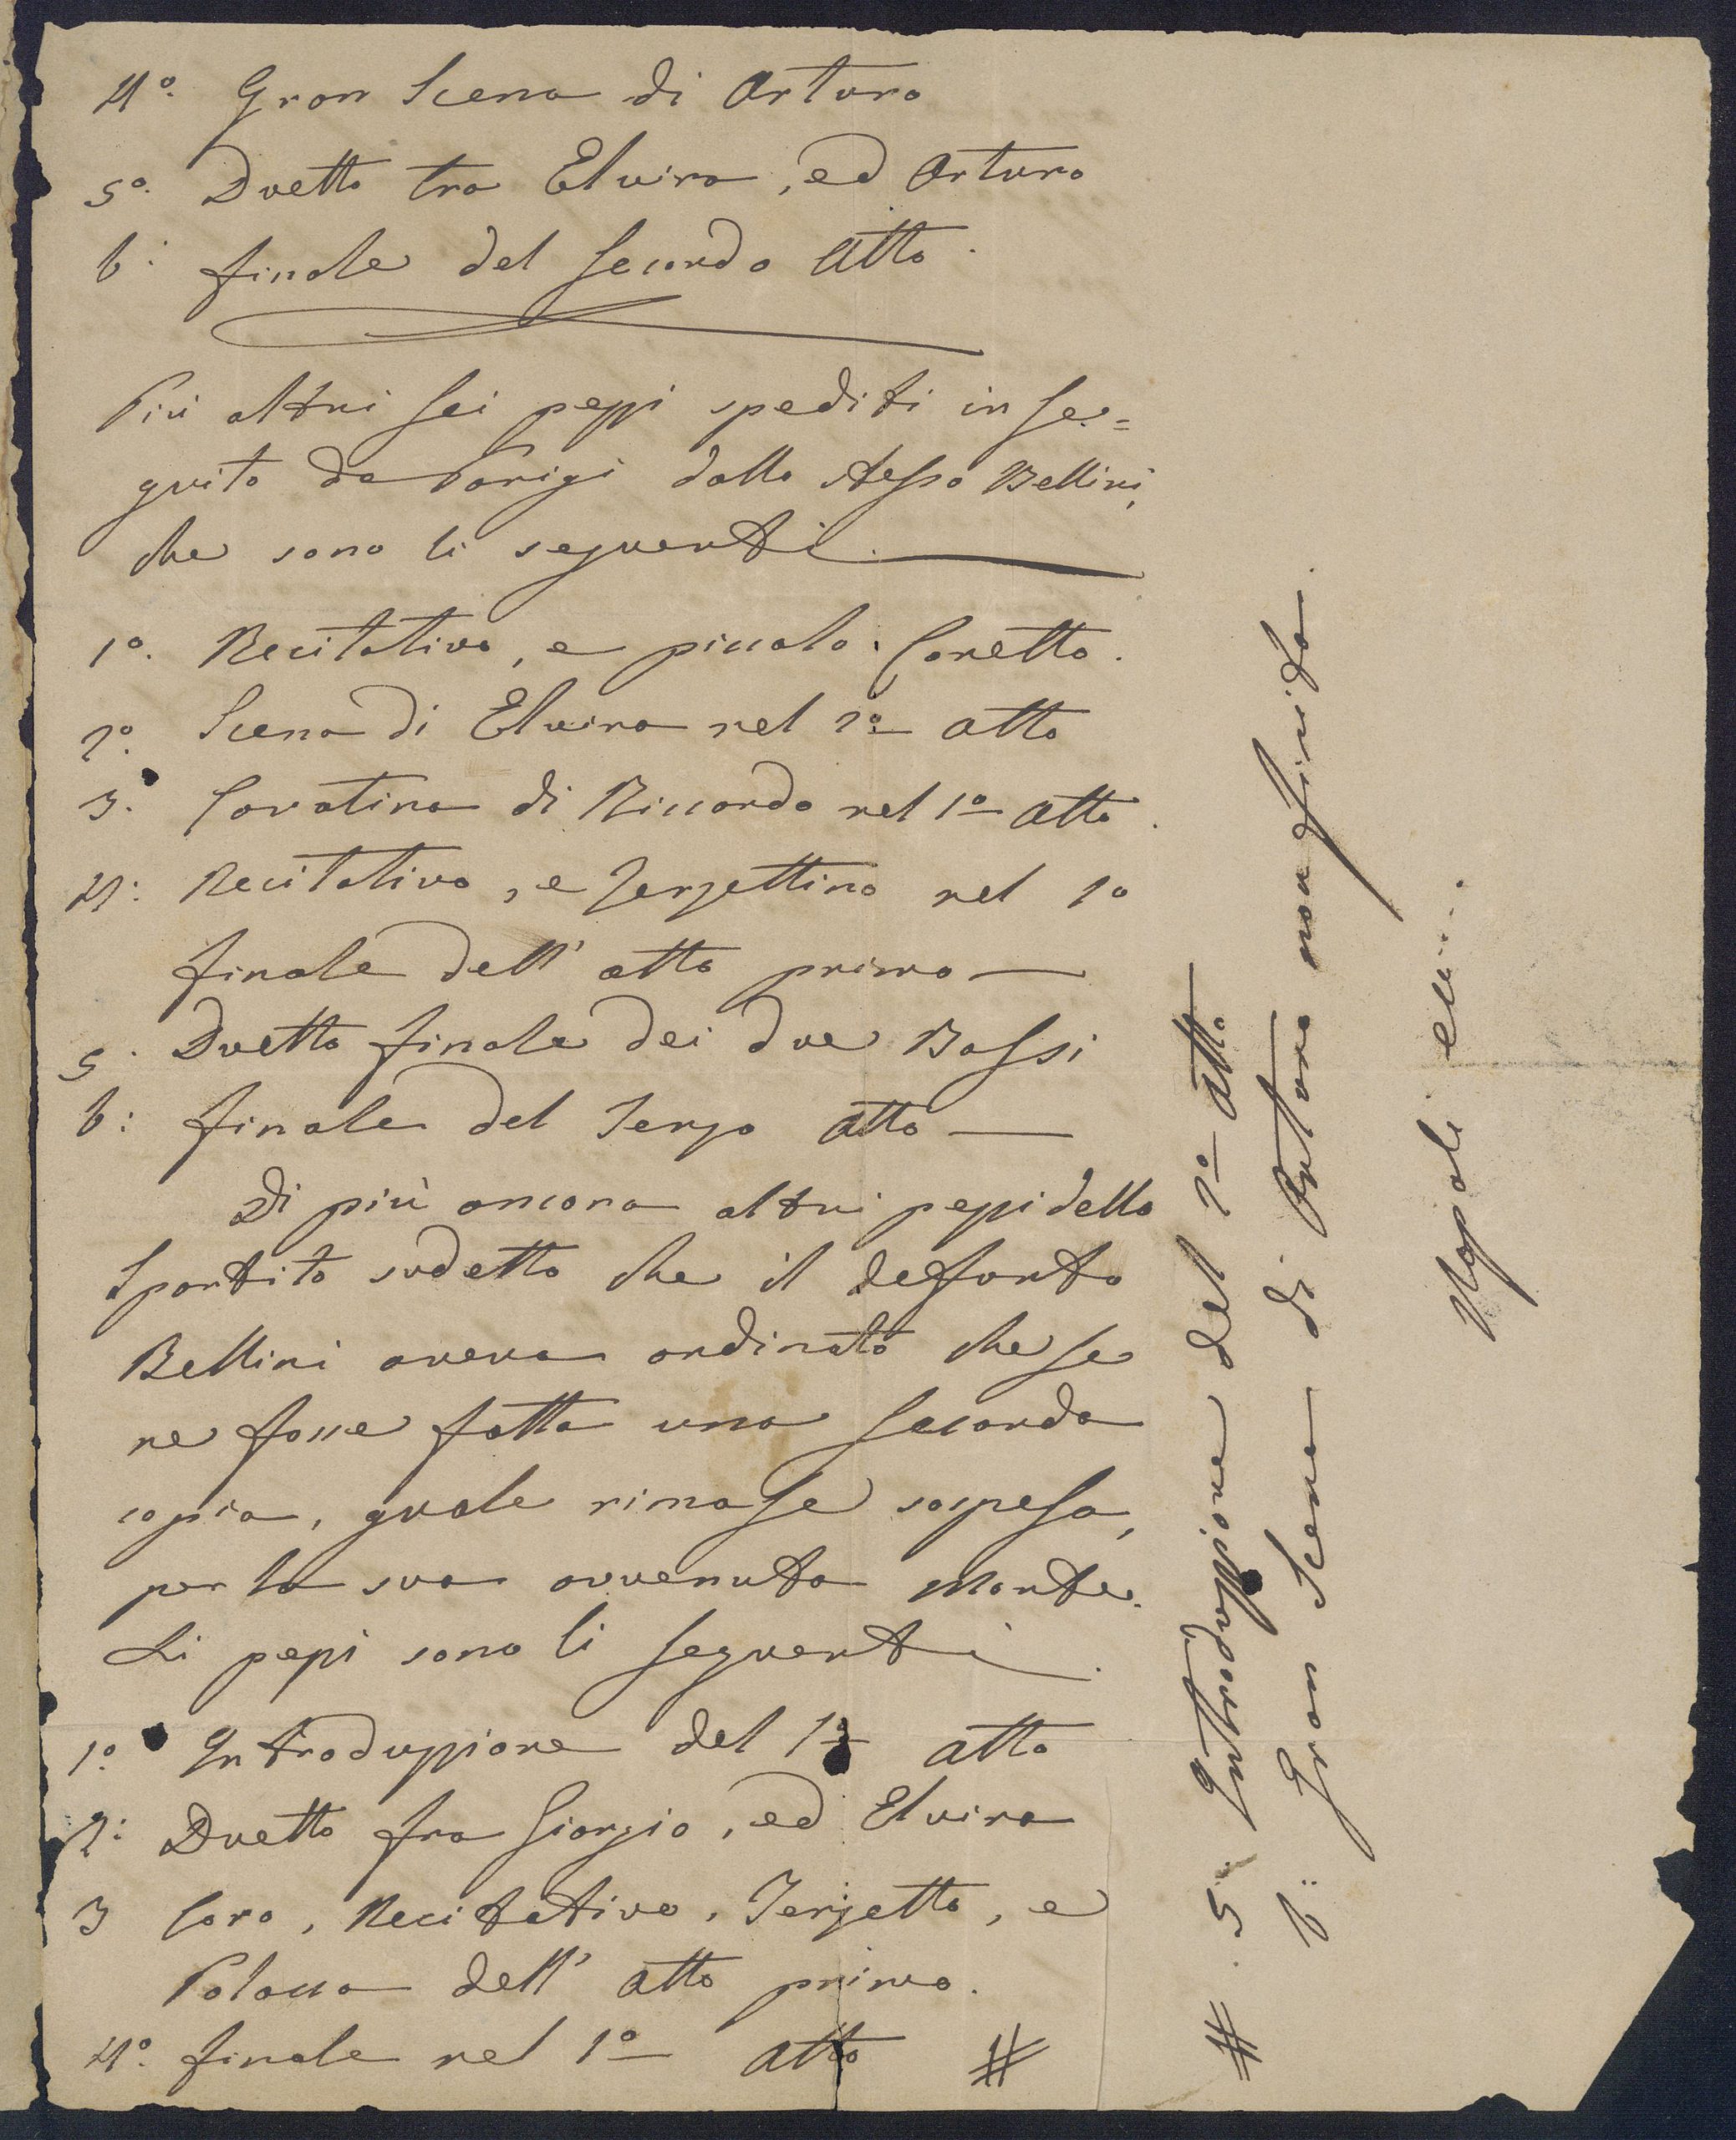 4º. Gran Scena di Arturo
5º. Duetto tra Elvira, ed Arturo
6: finale del Secondo Atto.
Più altri Sei pezzi spediti in Se=
guito da Parigi dallo stesso Bellini,
che sono li seguenti.
1º. Recitativo, e piccolo Coretto.
2º. Scena di Elvira nel 2º atto
3.º Cavatina di Riccardo nel 1º atto.
4: Recitativo, e Terzettino nel 1º
finale dell' atto primo —
5. Duetto finale dei due Bassi
6: finale del Terzo atto —
Di più ancora altri pezzi dello
Spartito sudetto che il defunto
Bellini aveva ordinato che se
ne fosse fatta una Seconda
copia, quale rimase sospesa,
per la sua avvenuta Morte.
Li pezzi sono li seguenti.
1º. Introduzzione del 1º atto
2: Duetto fra Giorgio, ed Elvira
3 Coro, Recitativo, Terzetto, e
Polacca dell' atto primo.
4º. finale nel 1º atto #
# . 5. Introduzzione del 2º atto
6: Gran Scena di Arturo non finita.
Napoli